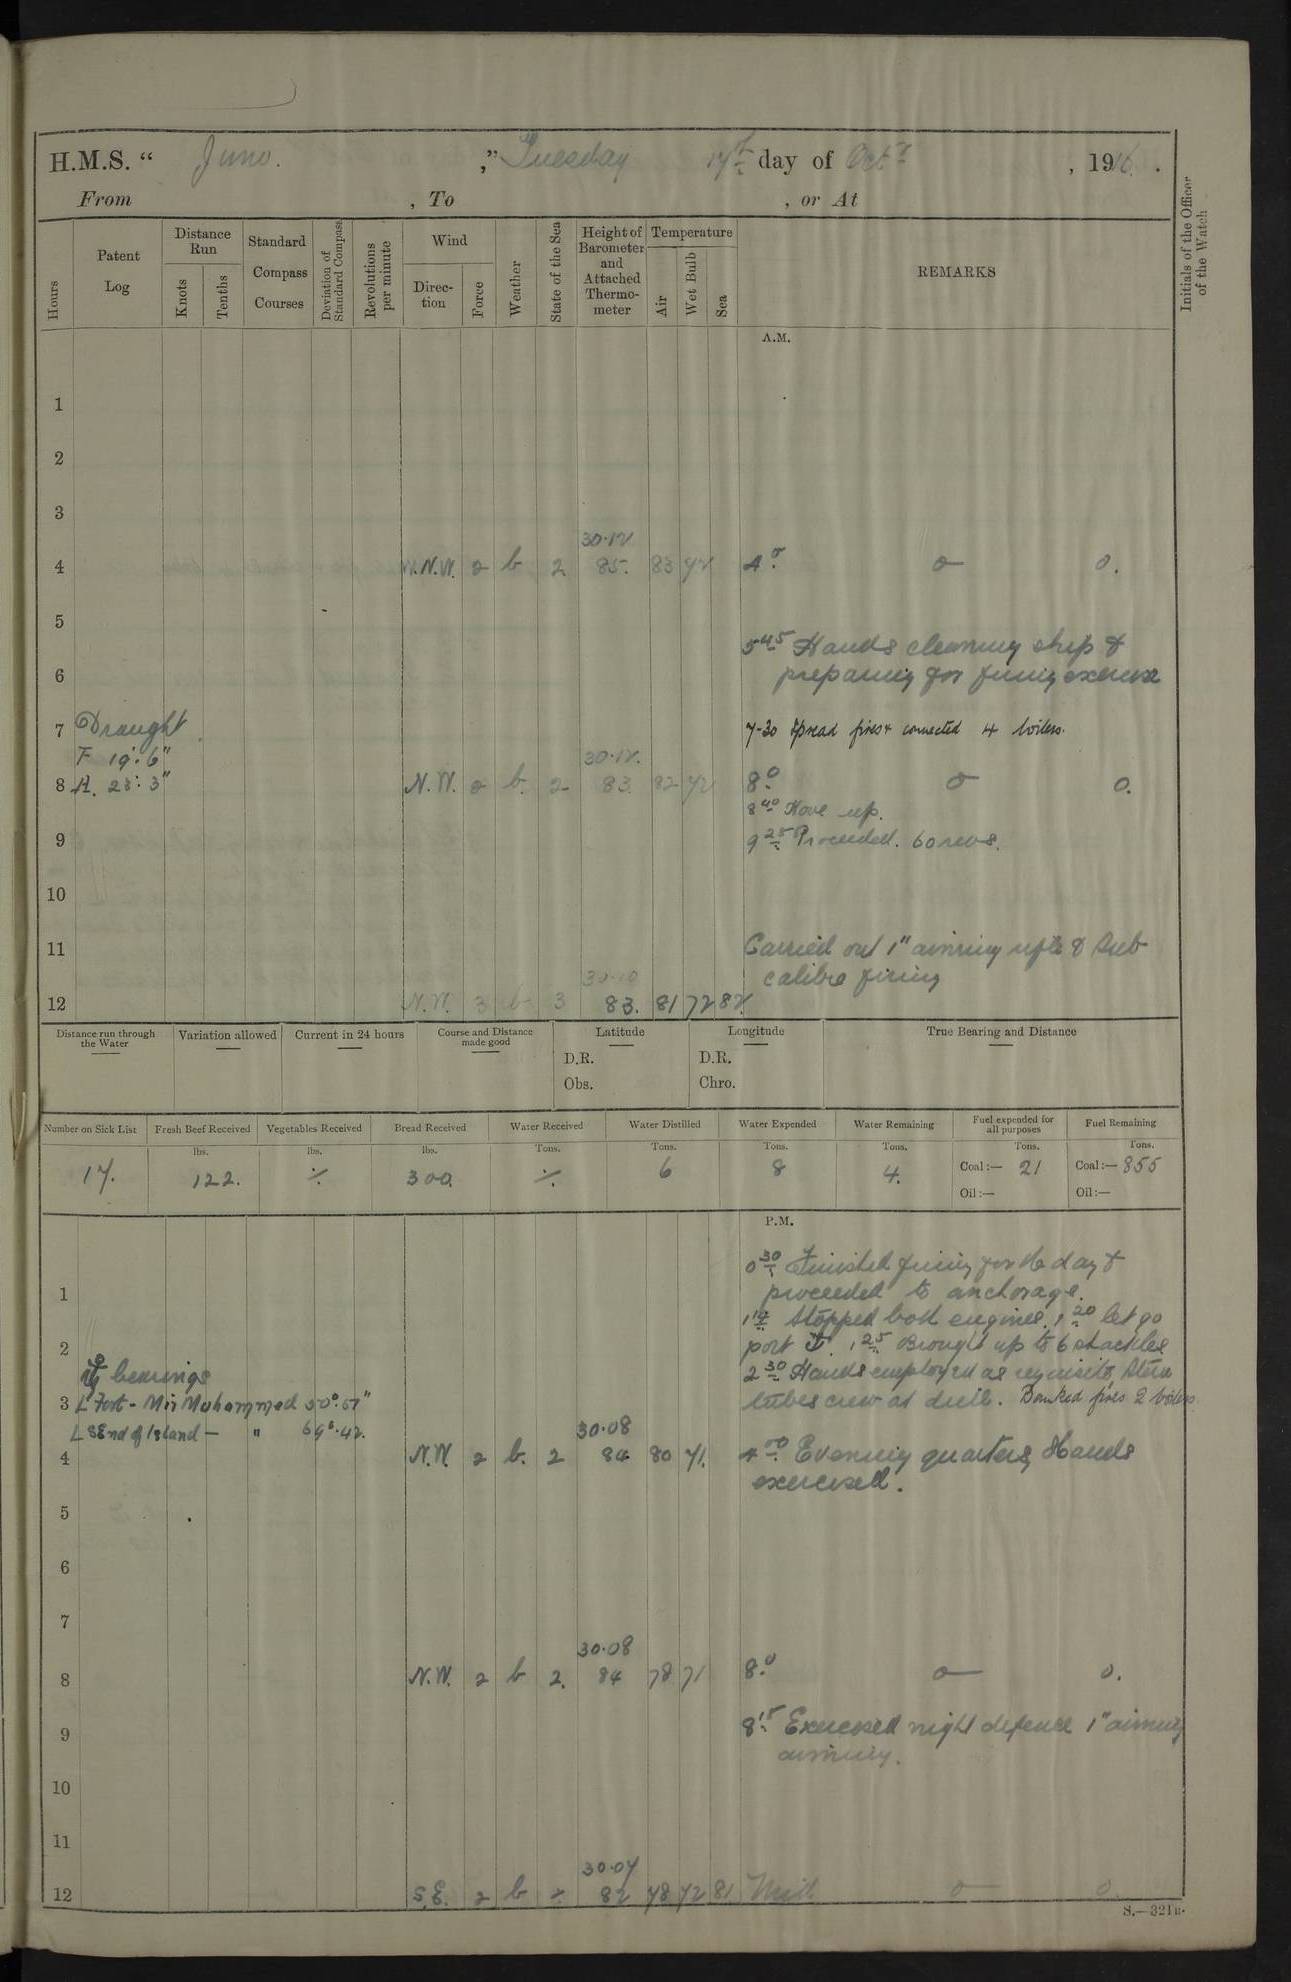 H.M.S. “ Juno. ,” Tuesday 17th day of Octr , 1916.
From , To , or At
Hours
Patent Log
Distance Run
Knots
Tenths
Standard Compass Courses
Deviation of Standard Compass
Revolutions per minute
Wind
Direction
Force
Weather
State of the Sea
Height of Barometer and Attached Thermometer
Temperature
Air
Wet Bulb
Sea
REMARKS
Initials of the Officer of the Watch
A.M.
1
2
3
30.12
4 N.N.W. 2 b 2 85. 83 72 4.0 0 0.
5
5.45 Hands cleaning ship &
6 preparing for firing exercise
7 Draught 7-30 Spread fires & connected 4 boilers.
F 19': 6"
30.12.
8 A. 23': 3" N.W. 2 b. 2 83. 82 72 8.0 0 0.
8.40 Hove up.
9 9.25 Proceeded. 60 revs.
10
11 Carried out 1" aiming rifle & Sub
30.10 calibre firing
12 N.W. 3 b 3 83. 81 72 82.
Distance run through the Water
Variation allowed
Current in 24 hours
Course and Distance made good
Latitude
D.R.
Obs.
Longitude
D.R.
Chro.
True Bearing and Distance
Number on Sick List
Fresh Beef Received
Vegetables Received
Bread Received
Water Received
Water Distilled
Water Expended
Water Remaining
Fuel expended for all purposes
Fuel Remaining
lbs. lbs. lbs. Tons. Tons. Tons. Tons. Tons. Tons.
17. 122. ⁒ 300. ⁒ 6 8 4. Coal:— 21 Coal:— 855
Oil:— Oil:—
P.M.
0.30 Finished firing for the day &
1 proceeded to anchorage.
Stopped both engines. 1.20 let go
2 port ⚓. 1.25 Brought up to 6 shackles
bearings 2.30 Hands employed as requisite, Stern
3 L Fort - Mir Mohammed 50°.57" tubes crew at drill. Banked fires 2 boilers.
L SEnd of Island — " 69°.42.
30.08
4 N.W. 2 b. 2 84 80 71. 4.00 Evening quarters, Hands
exercised.
5
6
7
30.08
8 N.W. 2 b 2. 84 78 71 8.0 0 0.
9 8.15 Exercised night defence 1" aiming
aiming.
10
11
30.07
12 S.E. 2 b 2. 82 78 72 81 Mid. 0 0.
S.—321B.